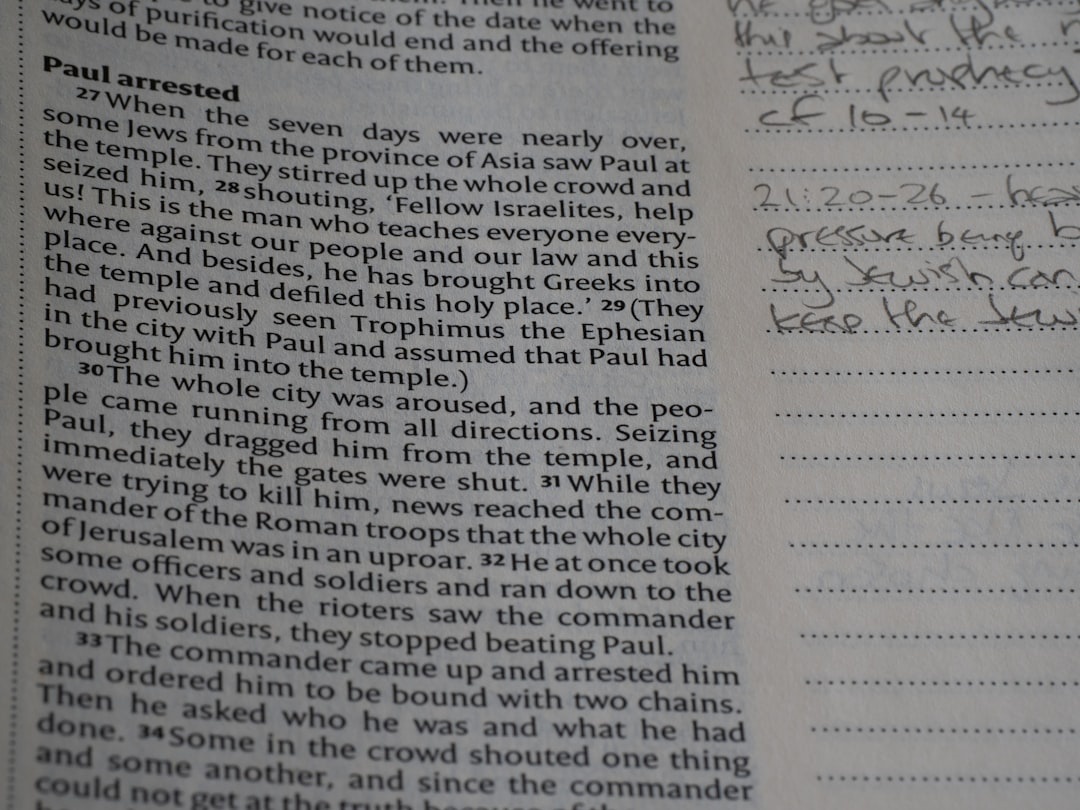 to give notice of the date when the
days of purification would end and the offering
would be made for each of them.
Paul arrested
27 When the seven days were nearly over,
some Jews from the province of Asia saw Paul at
the temple. They stirred up the whole crowd and
seized him, 28 shouting, ‘Fellow Israelites, help
us! This is the man who teaches everyone every-
where against our people and our law and this
place. And besides, he has brought Greeks into
the temple and defiled this holy place.’ 29 (They
had previously seen Trophimus the Ephesian
in the city with Paul and assumed that Paul had
brought him into the temple.)
30 The whole city was aroused, and the peo-
ple came running from all directions. Seizing
Paul, they dragged him from the temple, and
immediately the gates were shut. 31 While they
were trying to kill him, news reached the com-
mander of the Roman troops that the whole city
of Jerusalem was in an uproar. 32 He at once took
some officers and soldiers and ran down to the
crowd. When the rioters saw the commander
and his soldiers, they stopped beating Paul.
33 The commander came up and arrested him
and ordered him to be bound with two chains.
Then he asked who he was and what he had
done. 34 Some in the crowd shouted one thing
and some another, and since the commander
could not get at the truth because of the
he
this about the
test prophecy
cf 10-14
21:20-26 -
pressure being
by Jewish
keep the